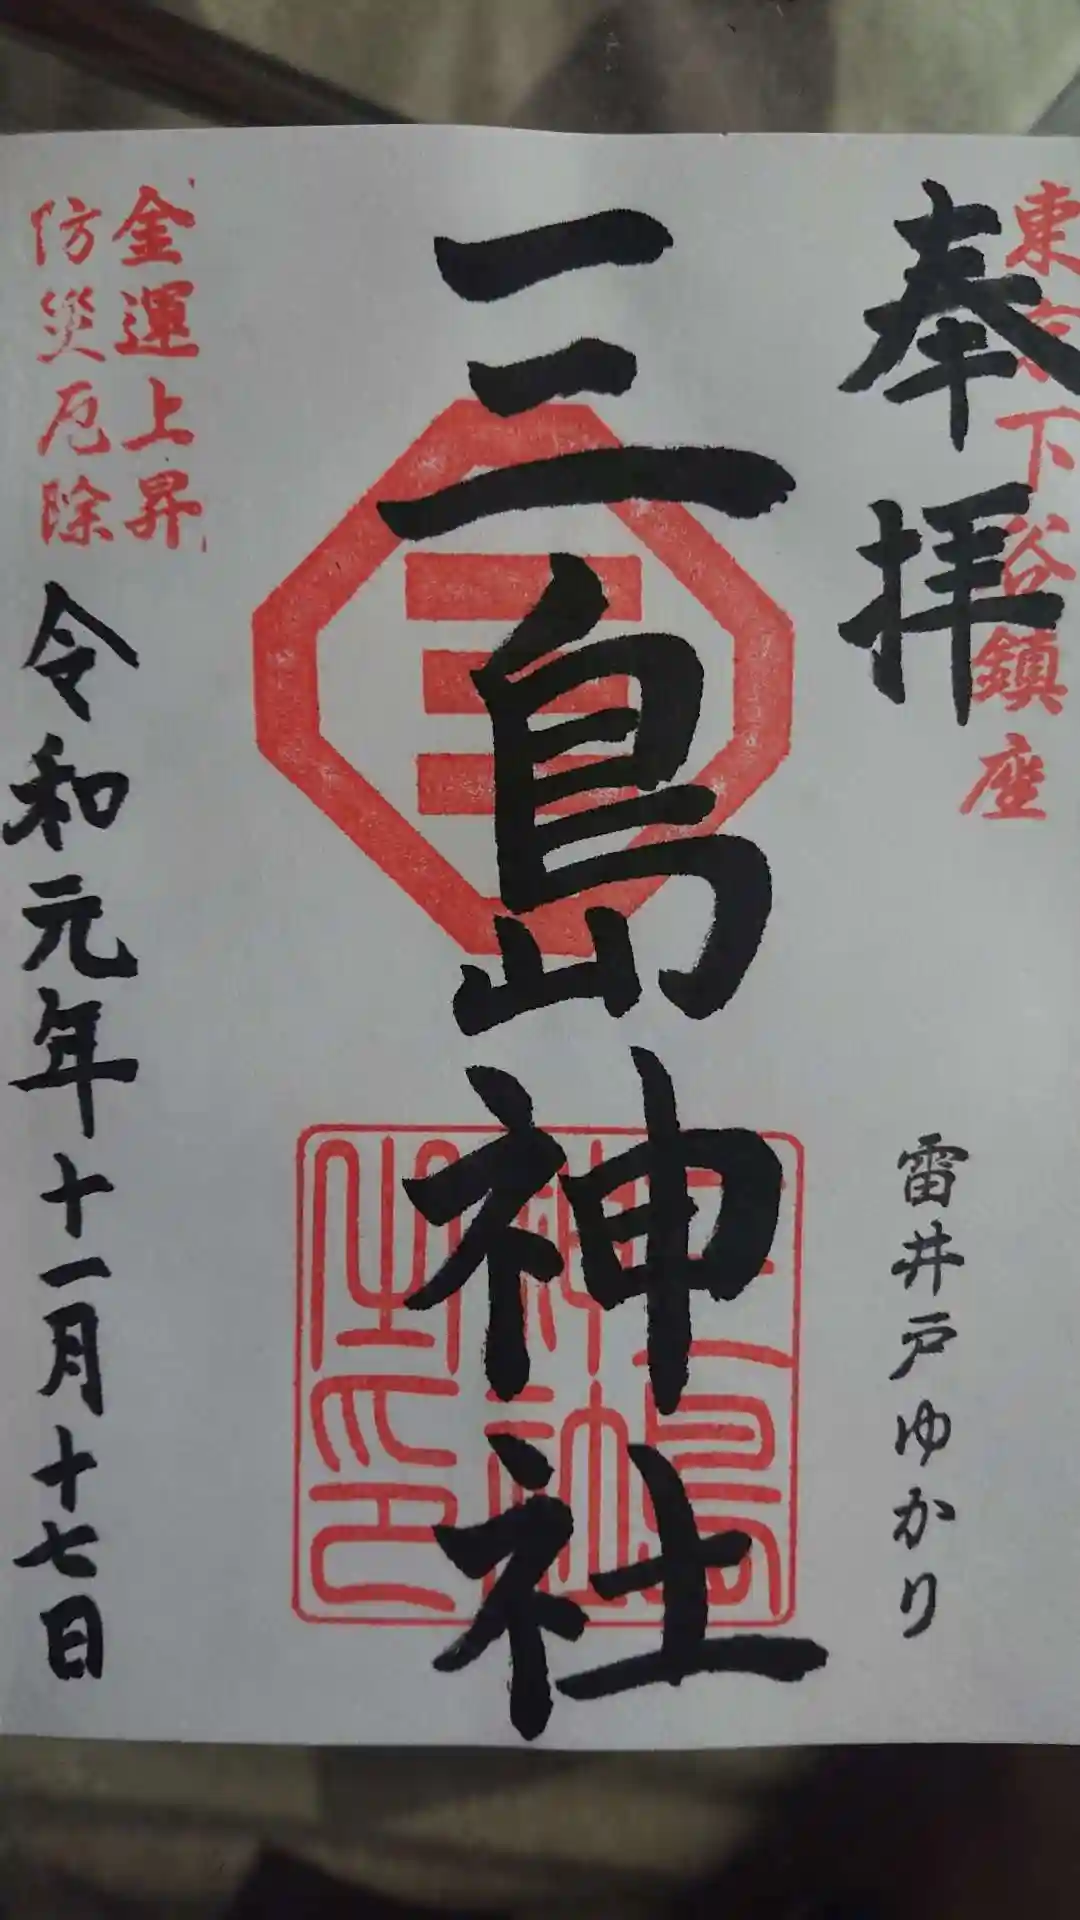 東京下谷鎮座
奉拝
雷井戸ゆかり
三島神社
金運上昇
防災厄除
令和元年十一月十七日